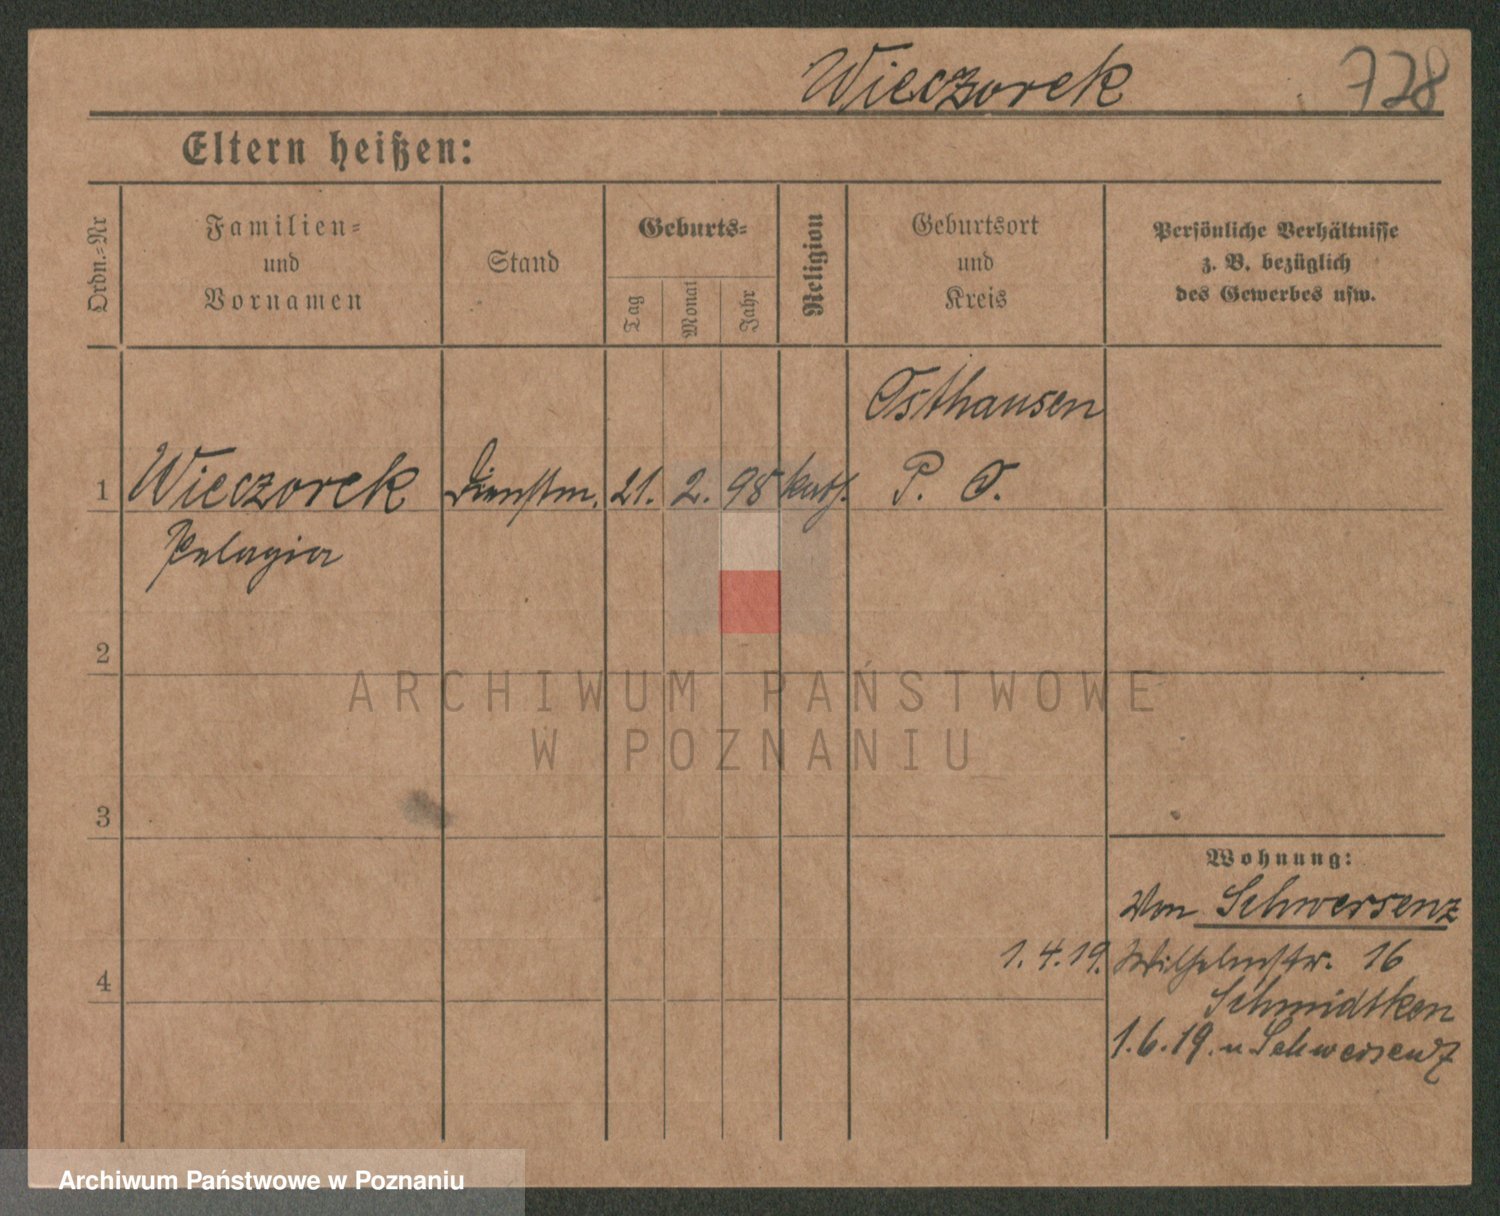 Wieczorek 728
Eltern heißen:
Ordn.-Nr
Familien-
und
Vornamen
Stand
Geburts-
Tag
Monat
Jahr
Religion
Geburtsort
und
Kreis
Persönliche Verhältnisse
z. B. bezüglich
des Gewerbes usw.
Osthausen
1 Wieczorek Dienstm. 21. 2. 98 kath. P. O.
Pelagia
2
ARCHIWUM PAŃSTWOWE
W POZNANIU
3
Wohnung:
Von Schwersenz
1.4.19. Wilhelmstr. 16
4
Schmidtken
1.6.19. n. Schwersenz
Archiwum Państwowe w Poznaniu